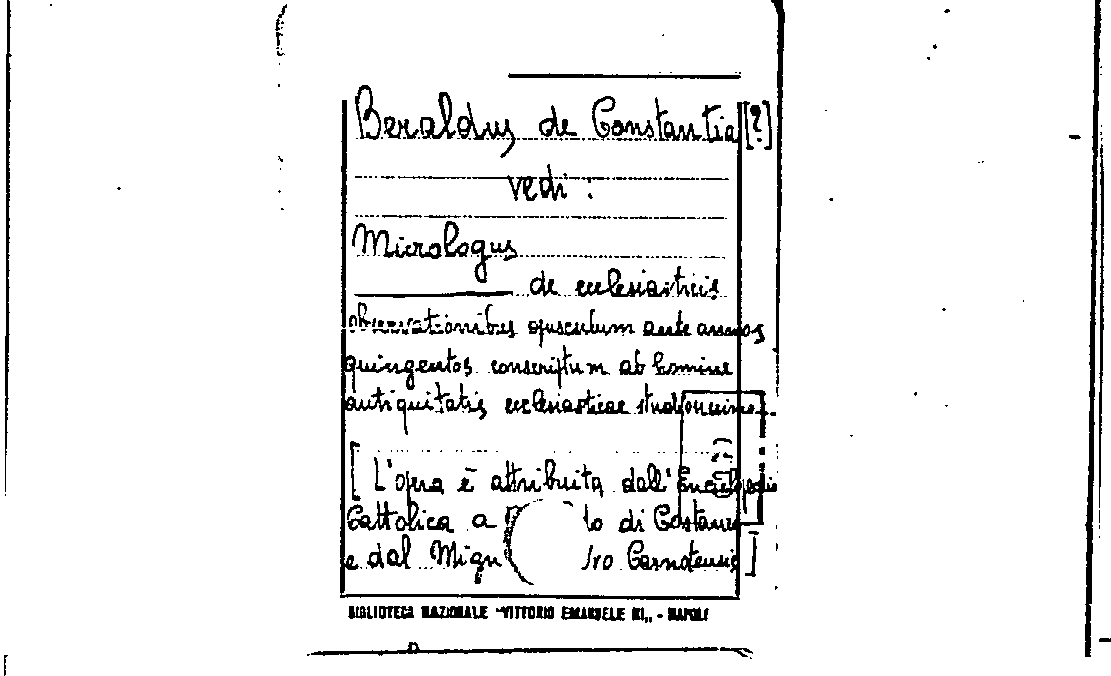 Beraldus de Constantia [?]
vedi :
Micrologus
de ecclesiasticis
observationibus opusculum ante annos
quingentos conscriptum ab homine
antiquitatis ecclesiasticae
[ L'opera è attribuita dall'Enciclopedia
Cattolica a di Costanza
e dal Carnotensis ]
BIBLIOTECA NAZIONALE "VITTORIO EMANUELE III„ - NAPOLI